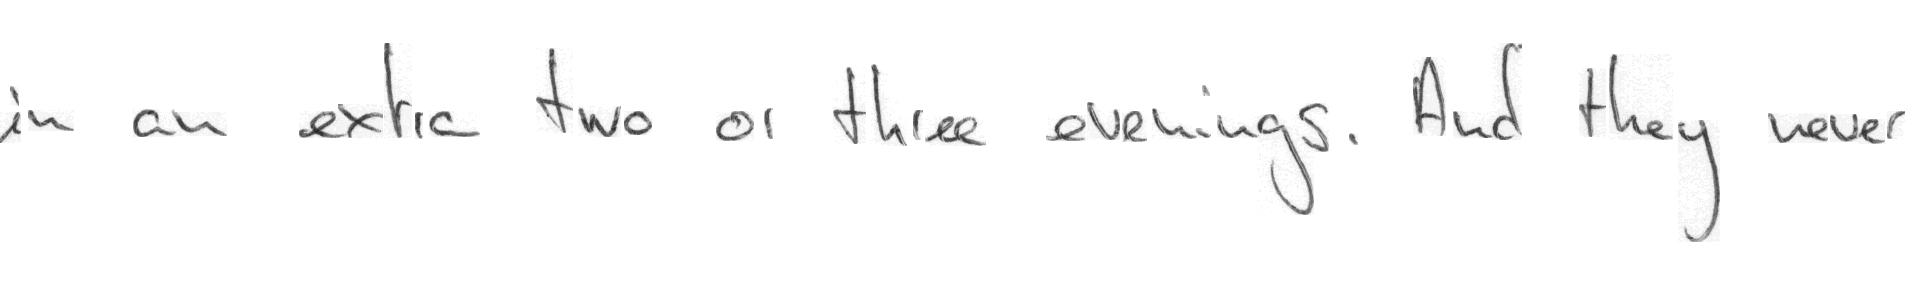 in an extra two or three evenings. And they never